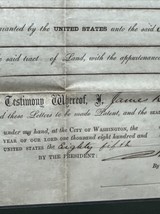 granted by the UNITED STATES unto the said
said tract of Land, with the appurtenances
Testimony Whereof, I, James
these Letters to be made Patent, and the
under my hand, at the CITY OF WASHINGTON, the
YEAR OF OUR LORD one thousand eight hundred and
UNITED STATES the Eighty fifth
BY THE PRESIDENT:
By